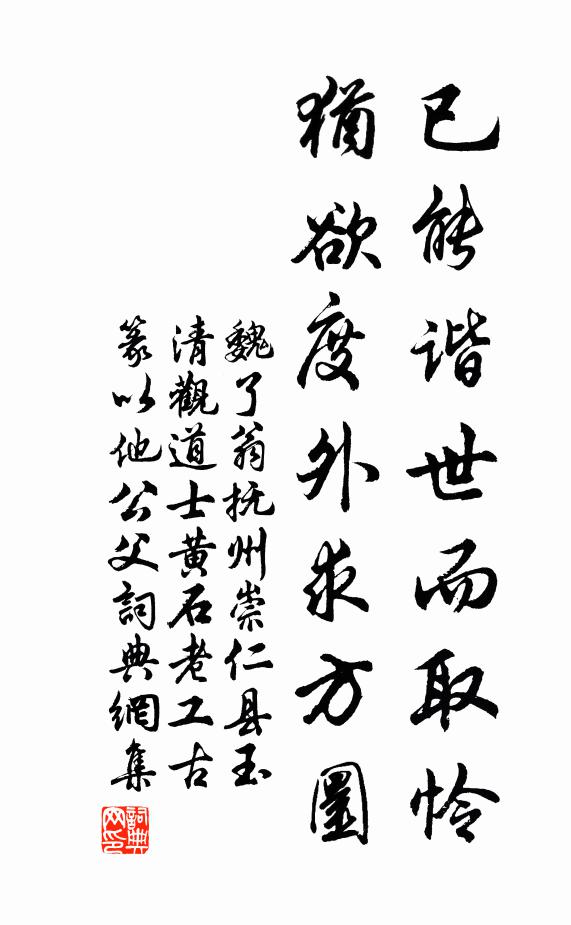 已能谐世而取怜
猶欲度外求方圓
魏了翁抚州崇仁县玉
清觀道士黄石老工古
篆以他公父詞典網集
詞典网印